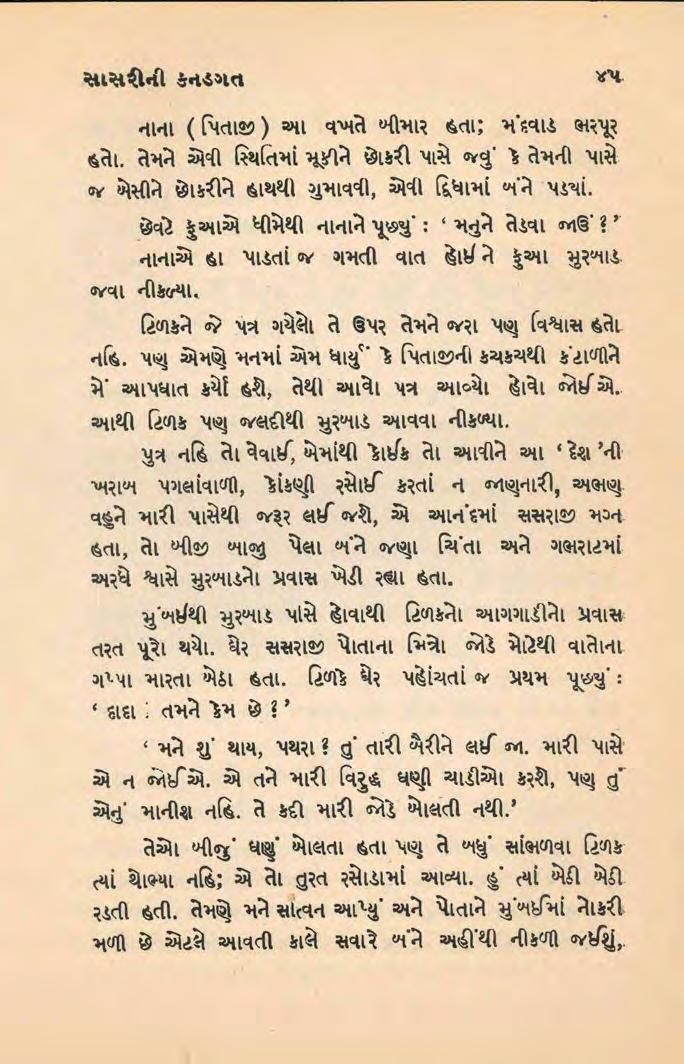 સાસરીની કનડગત ૪૫
નાના ( પિતાજી ) આ વખતે બીમાર હતા; મંદવાડ ભરપૂર
હતો. તેમને એવી સ્થિતિમાં મૂકીને છોકરી પાસે જવું કે તેમની પાસે
જ બેસીને છોકરીને હાથથી ગુમાવવી, એવી દ્વિધામાં બંને પડયાં.
છેવટે ફુઆએ ધીમેથી નાનાને પૂછ્યું : ‘ મનુને તેડવા જાઉં ? ’
નાનાએ હા પાડતાં જ ગમતી વાત હોઈને ફુઆ મુરબાડ
જવા નીકળ્યા.
ટિળકને જે પત્ર ગયેલો તે ઉપર તેમને જરા પણ વિશ્વાસ હતો
નહિ. પણ એમણે મનમાં એમ ધાર્યું કે પિતાજીની કચકચથી કંટાળીને
મેં આપઘાત કર્યો હશે, તેથી આવો પત્ર આવ્યો હોવો જોઈએ.
આથી ટિળક પણ જલદીથી મુરબાડ આવવા નીકળ્યા.
પુત્ર નહિ તો વેવાઈ, બેમાંથી કોઈક તો આવીને આ ‘ દેશ ’ની
ખરાબ પગલાંવાળી, કોંકણી રસોઈ કરતાં ન જાણનારી, અભણ
વહુને મારી પાસેથી જરૂર લઈ જશે, એ આનંદમાં સસરાજી મગ્ન
હતા, તો બીજી બાજુ પેલા બંને જણા ચિંતા અને ગભરાટમાં
અરધે શ્વાસે મુરબાડનો પ્રવાસ ખેડી રહ્યા હતા.
મુંબઈથી મુરબાડ પાસે હોવાથી ટિળકનો આગગાડીનો પ્રવાસ
તરત પૂરો થયો. ઘેર સસરાજી પોતાના મિત્રો જોડે મોટેથી વાતોના
ગપ્પા મારતા બેઠા હતા. ટિળકે ઘેર પહોંચતાં જ પ્રથમ પૂછ્યું :
‘ દાદા : તમને કેમ છે ? ’
‘ મને શું થાય, પથરા ? તું તારી બૈરીને લઈ જા. મારી પાસે
એ ન જોઈએ. એ તને મારી વિરુદ્ધ ઘણી ચાડીઓ કરશે, પણ તું
એનું માનીશ નહિ. તે કદી મારી જોડે બોલતી નથી.’
તેઓ બીજું ઘણું બોલતા હતા પણ તે બધું સાંભળવા ટિળક
ત્યાં થોભ્યા નહિ; એ તો તુરત રસોડામાં આવ્યા. હું ત્યાં બેઠી બેઠી
રડતી હતી. તેમણે મને સાંત્વન આપ્યું અને પોતાને મુંબઈમાં નોકરી
મળી છે એટલે આવતી કાલે સવારે બંને અહીંથી નીકળી જઈશું,